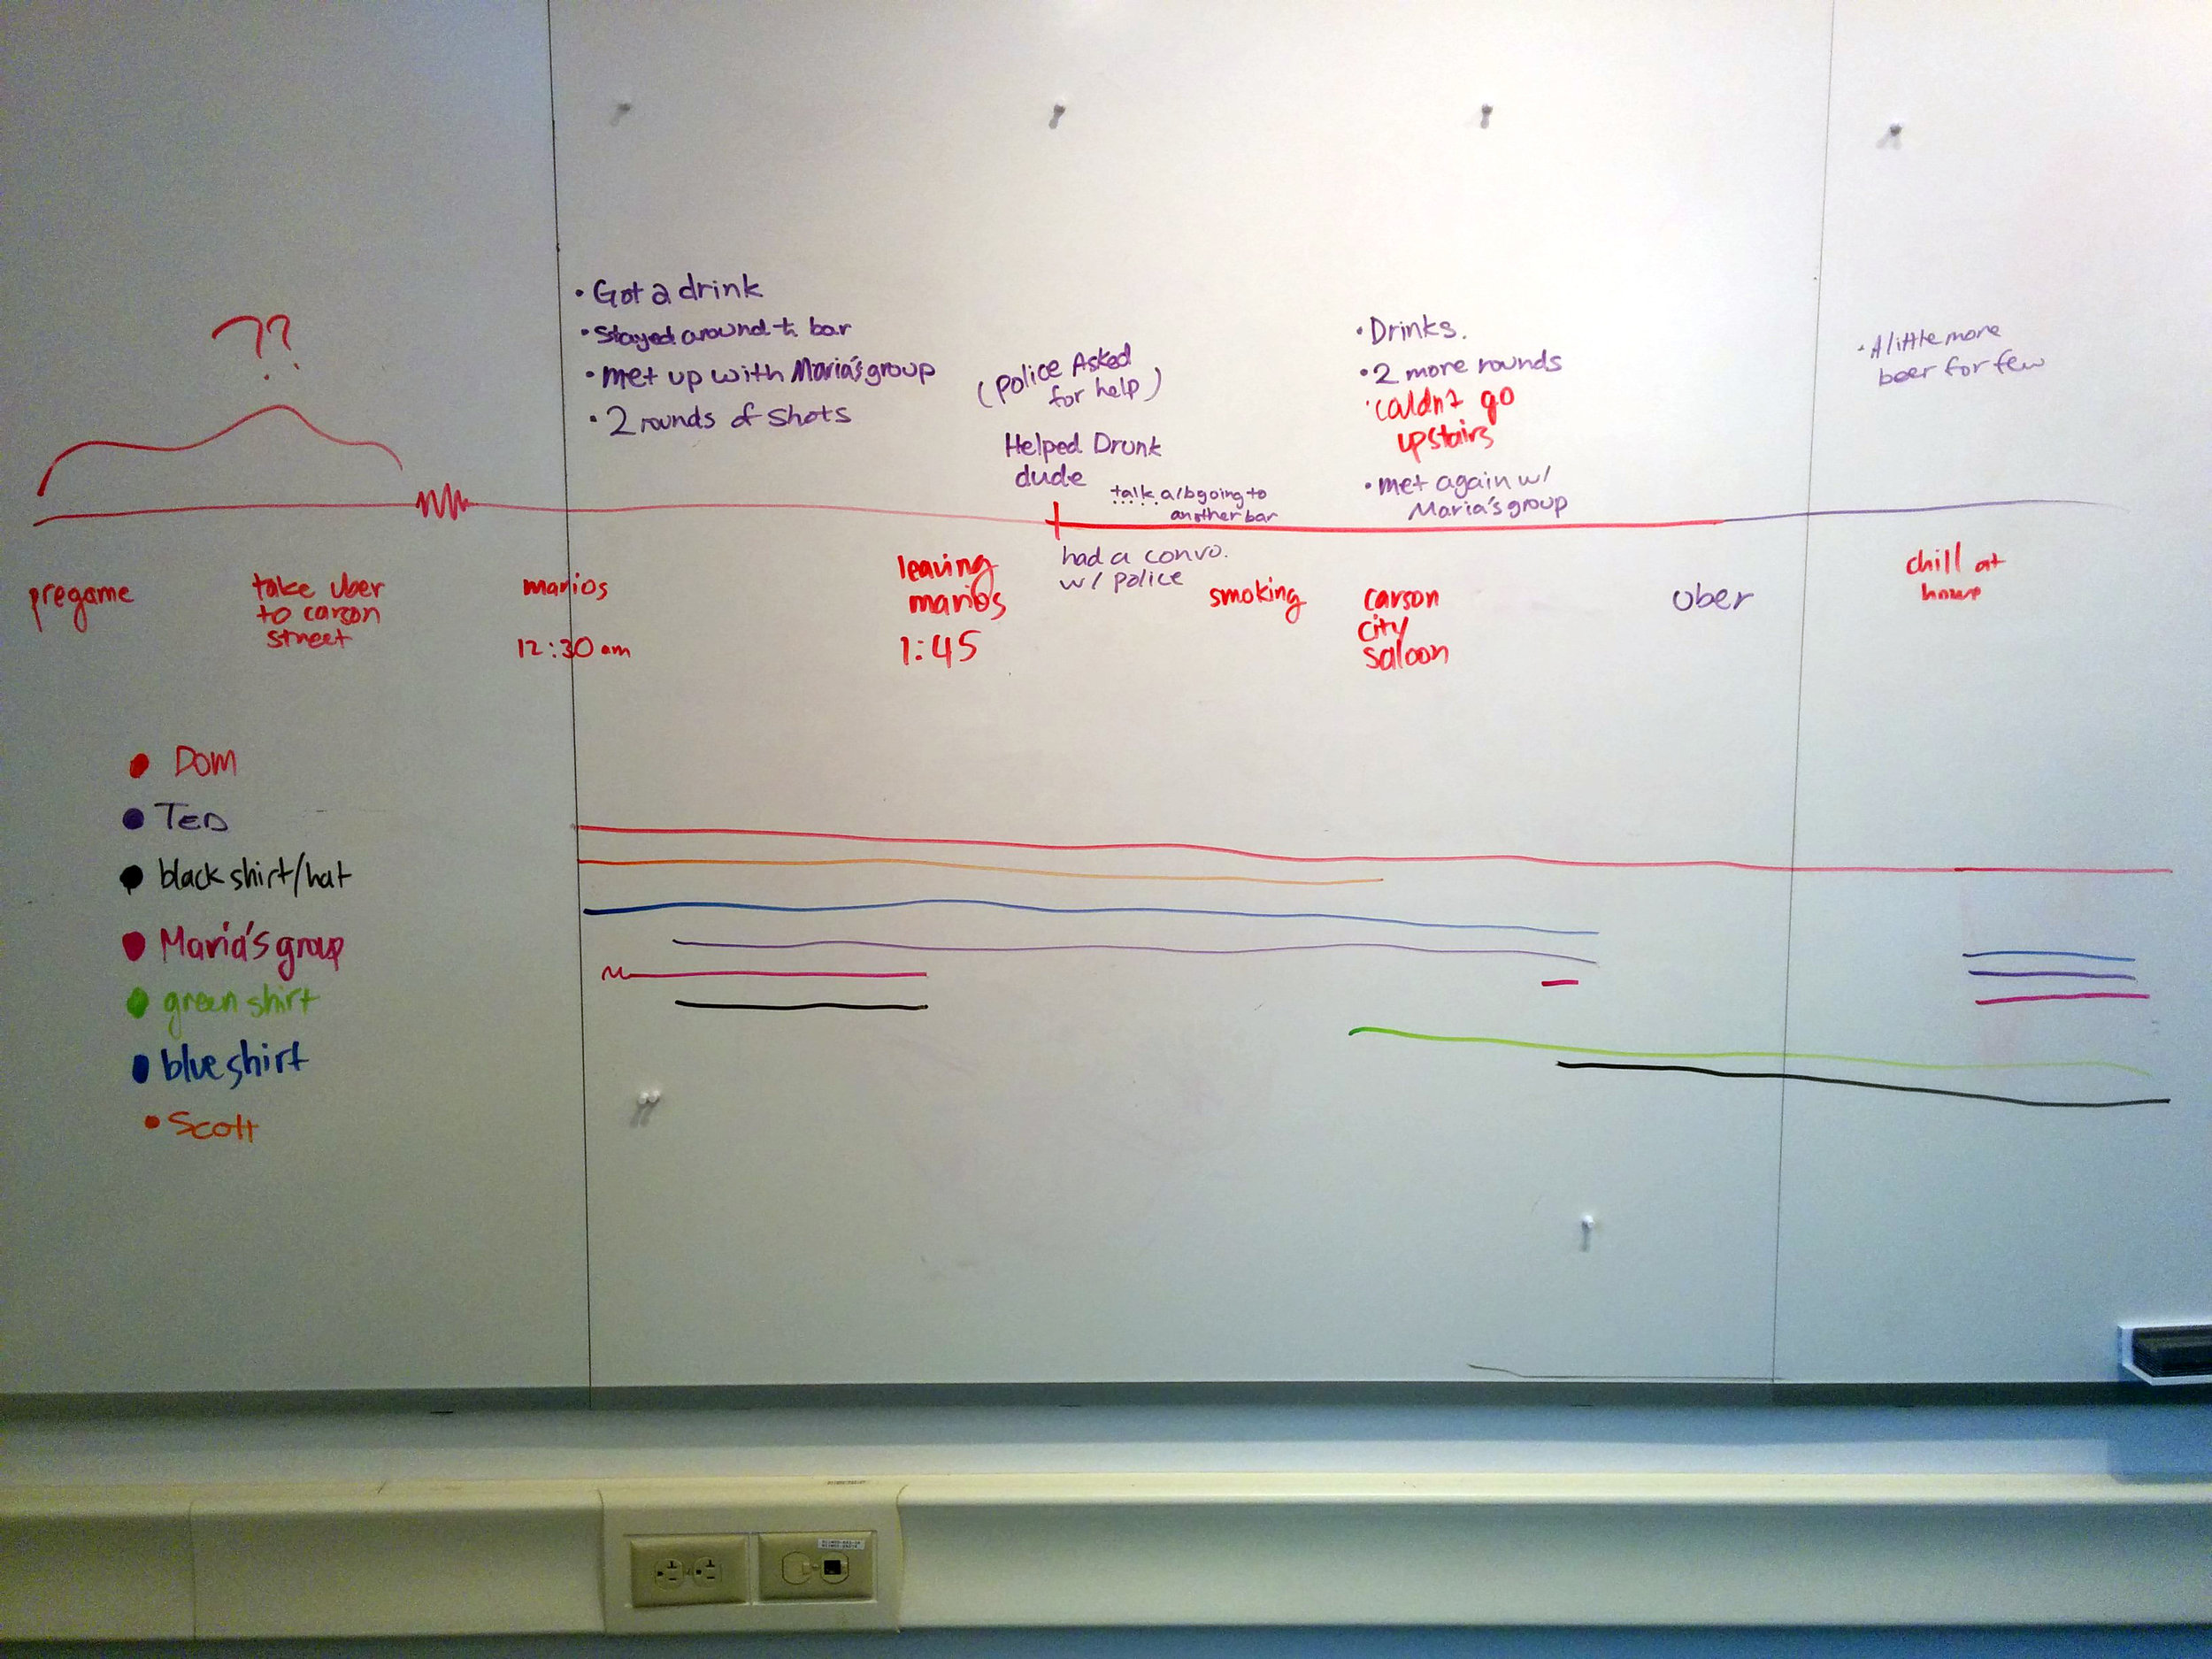 ??
• Got a drink
• Stayed around t. bar
• met up with Maria's group
• 2 rounds of shots
(Police Asked
for help)
Helped Drunk
dude
talk a/b going to
another bar
• Drinks.
• 2 more rounds
• couldn't go
upstairs
• met again w/
Maria's group
• A little more
beer for few
pregame
take uber
to carson
street
marios
12:30 am
leaving
marios
1:45
had a convo.
w/ police
smoking
carson
city
saloon
uber
chill at
home
• Dom
• TED
• black shirt/hat
• Maria's group
• green shirt
• blue shirt
• Scott